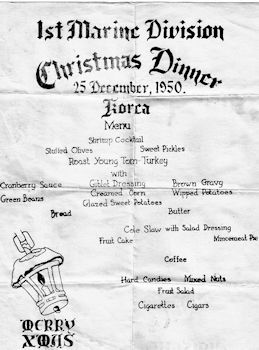 1st Marine Division
Christmas Dinner
25 December, 1950.
Korea
Menu
Shrimp Cocktail
Stuffed Olives Sweet Pickles
Roast Young Tom Turkey
with
Cranberry Sauce Giblet Dressing Brown Gravy
Green Beans Creamed Corn Wipped Potatoes
Glazed Sweet Potatoes
Bread Butter
Cole Slaw with Salad Dressing
Fruit Cake Mincemeat Pie
Coffee
Hard Candies Mixed Nuts
Fruit Salad
Cigarettes Cigars
MERRY
X'MAS